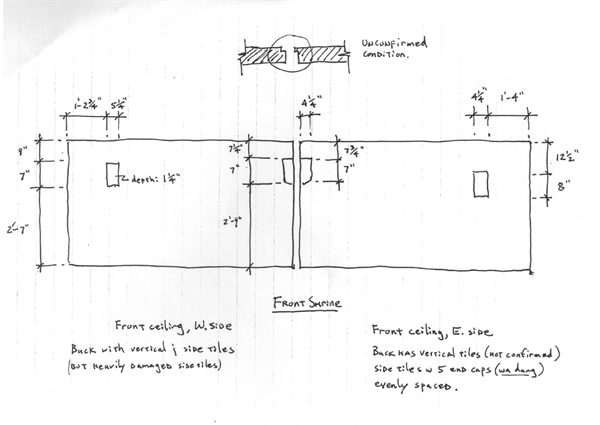 UNCONFIRMED
CONDITION.
1'-2 3/4" 5 1/4" 4 1/4" 4 1/4" 1'-4"
9" 7 1/4" 7 3/4" 12 1/2"
7" depth: 1 1/4" 7" 7" 8"
2'-7" 2'-9"
FRONT SHRINE
Front ceiling, W. side
Back with vertical & side tiles
(but heavily damaged side tiles)
Front ceiling, E. side
Back has vertical tiles (not confirmed)
side tiles w 5 end caps (wa dang)
evenly spaced.